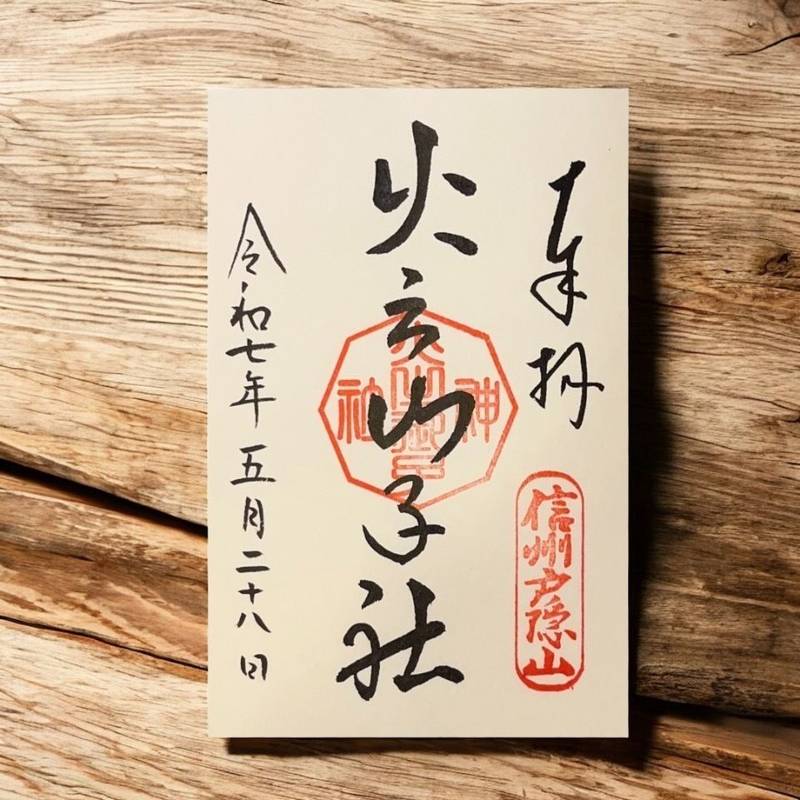 奉拝
信州戸隠山
火之御子社
神
社
令和七年五月二十八日